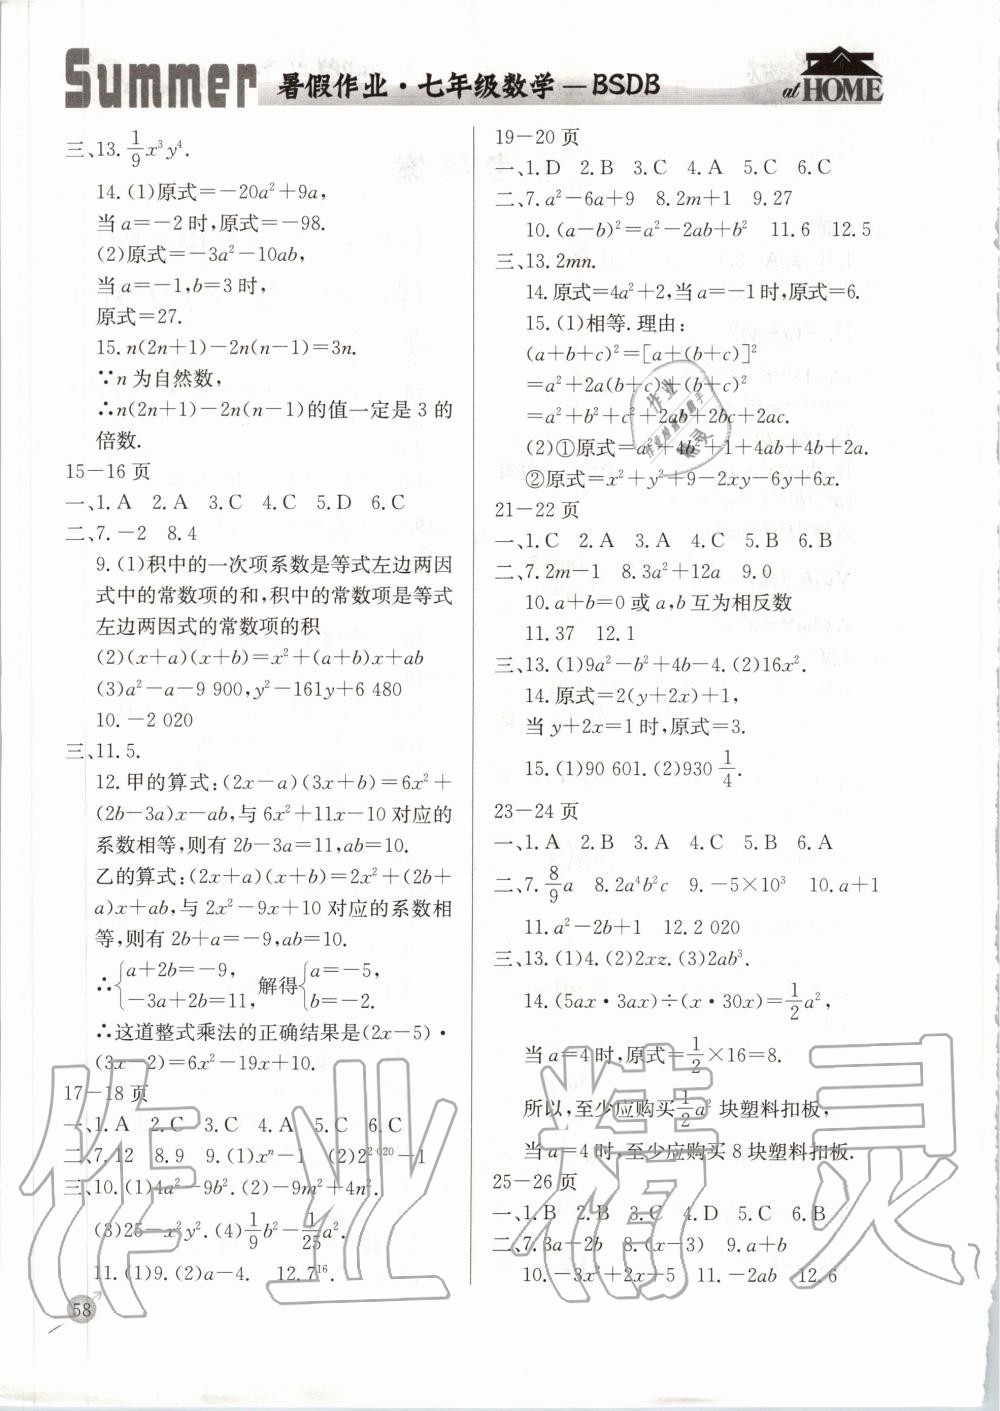 Summer 暑假作业·七年级数学—BSDB at HOME
三、13.1/9x³y⁴.
14.(1)原式=-20a²+9a,
当a=-2时,原式=-98.
(2)原式=-3a²-10ab,
当a=-1,b=3时,
原式=27.
15.n(2n+1)-2n(n-1)=3n.
∵n为自然数,
∴n(2n+1)-2n(n-1)的值一定是3的
倍数.
15-16页
一、1.A 2.A 3.C 4.C 5.D 6.C
二、7.-2 8.4
9.(1)积中的一次项系数是等式左边两因
式中的常数项的和,积中的常数项是等式
左边两因式的常数项的积
(2)(x+a)(x+b)=x²+(a+b)x+ab
(3)a²-a-9 900,y²-161y+6 480
10.-2 020
三、11.5.
12.甲的算式:(2x-a)(3x+b)=6x²+
(2b-3a)x-ab,与6x²+11x-10对应的
系数相等,则有2b-3a=11,ab=10.
乙的算式:(2x+a)(x+b)=2x²+(2b+
a)x+ab,与2x²-9x+10对应的系数相
等,则有2b+a=-9,ab=10.
∴{a+2b=-9, -3a+2b=11, 解得{a=-5, b=-2.
∴这道整式乘法的正确结果是(2x-5)·
(3x-2)=6x²-19x+10.
17-18页
一、1.A 2.C 3.C 4.A 5.C 6.C
二、7.12 8.9 9.(1)xⁿ-1 (2)2²⁰²⁰-1
三、10.(1)4a²-9b².(2)-9m²+4n².
(3)25-x²y².(4)1/9b²-1/25a².
11.(1)9.(2)a-4. 12.7¹⁶.
58
19-20页
一、1.D 2.B 3.C 4.A 5.C 6.C
二、7.a²-6a+9 8.2m+1 9.27
10.(a-b)²=a²-2ab+b² 11.6 12.5
三、13.2mn.
14.原式=4a²+2,当a=-1时,原式=6.
15.(1)相等.理由:
(a+b+c)²=[a+(b+c)]²
=a²+2a(b+c)+(b+c)²
=a²+b²+c²+2ab+2bc+2ac.
(2)①原式=a²+4b²+1+4ab+4b+2a.
②原式=x²+y²+9-2xy-6y+6x.
21-22页
一、1.C 2.A 3.A 4.C 5.B 6.B
二、7.2m-1 8.3a²+12a 9.0
10.a+b=0或a,b互为相反数
11.37 12.1
三、13.(1)9a²-b²+4b-4.(2)16x².
14.原式=2(y+2x)+1,
当y+2x=1时,原式=3.
15.(1)90 601.(2)930 1/4.
23-24页
一、1.A 2.B 3.A 4.C 5.B 6.A
二、7.8/9a 8.2a⁴b²c 9.-5×10³ 10.a+1
11.a²-2b+1 12.2 020
三、13.(1)4.(2)2xz.(3)2ab³.
14.(5ax·3ax)÷(x·30x)=1/2a²,
当a=4时,原式=1/2×16=8.
所以,至少应购买1/2a²块塑料扣板,
当a=4时,至少应购买8块塑料扣板.
25-26页
一、1.B 2.B 3.C 4.D 5.C 6.B
二、7.3a-2b 8.(x-3) 9.a+b
10.-3x²+2x-5 11.-2ab 12.6
作业精灵